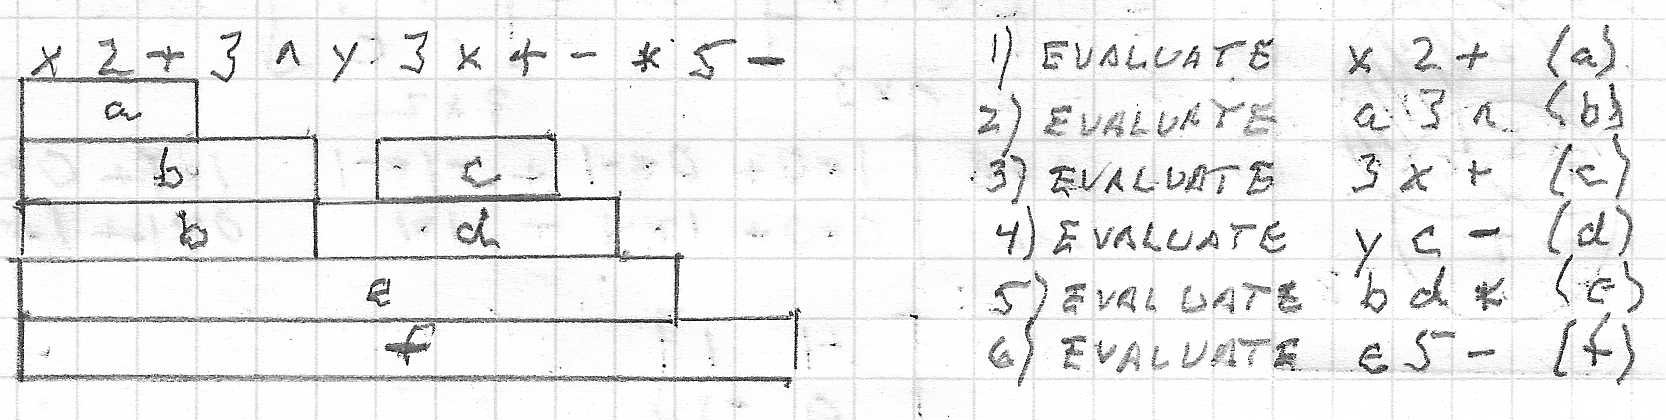 x 2 + 3 ^ y 3 x + - * 5 -
a
b c
b d
e
f
1) EVALUATE x 2 + (a)
2) EVALUATE a 3 ^ (b)
3) EVALUATE 3 x + (c)
4) EVALUATE y c - (d)
5) EVALUATE b d * (e)
6) EVALUATE e 5 - (f)